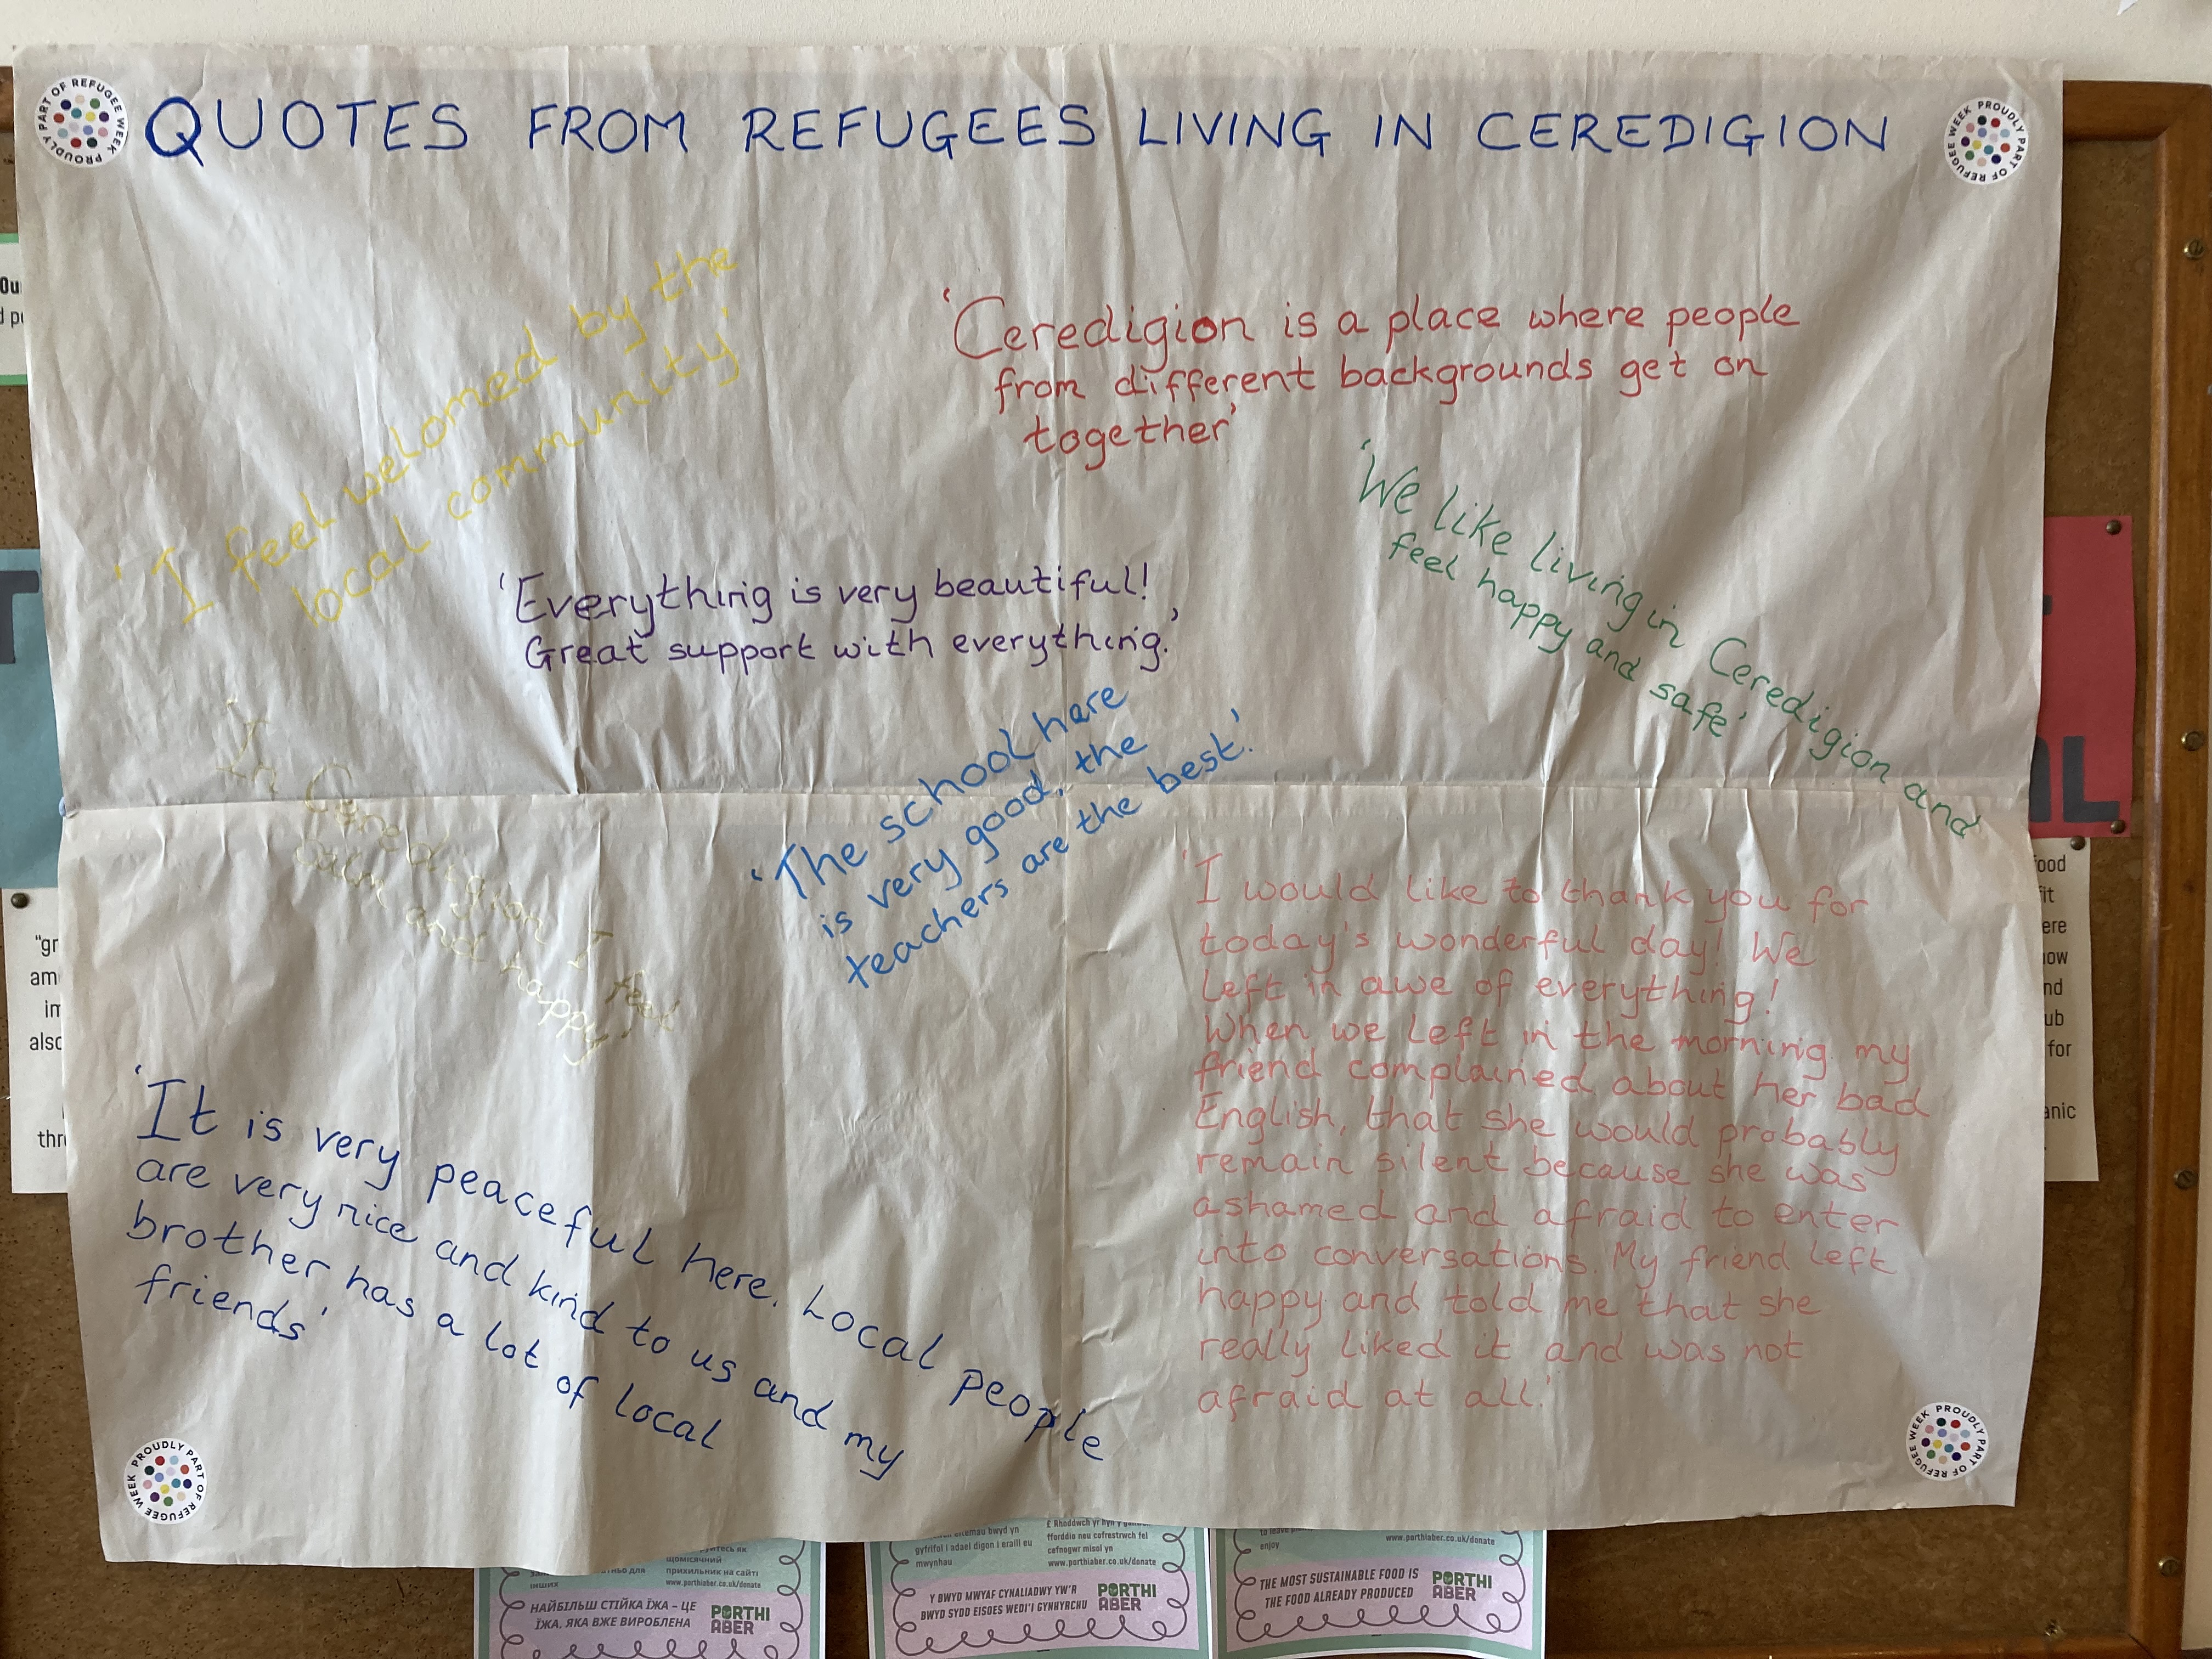 QUOTES FROM REFUGEES LIVING IN CEREDIGION
PROUDLY PART OF REFUGEE WEEK
PROUDLY PART OF REFUGEE WEEK
'I feel welomed by the
local community'
'Ceredigion is a place where people
from different backgrounds get on
together'
'We like living in Ceredigion and
feel happy and safe'
'Everything is very beautiful!
Great support with everything.'
'In Ceredigion I feel
calm and happy'
'The school hare
is very good, the
teachers are the best.'
'I would like to thank you for
today's wonderful day! We
left in awe of everything!
When we left in the morning my
friend complained about her bad
English, that she would probably
remain silent because she was
ashamed and afraid to enter
into conversations. My friend left
happy and told me that she
really liked it and was not
afraid at all.'
'It is very peaceful here. Local people
are very nice and kind to us and my
brother has a lot of local
friends'
PROUDLY PART OF REFUGEE WEEK
PROUDLY PART OF REFUGEE WEEK
Ou
"gr
am
im
also
thr
ood
fit
ere
now
nd
ub
for
anic
щомісячний
прихильник на сайті
інших
www.porthiaber.co.uk/donate
НАЙБІЛЬШ СТІЙКА ЇЖА – ЦЕ
ЇЖА, ЯКА ВЖЕ ВИРОБЛЕНА
PORTHI
ABER
bwyd yn
gyfrifol i adael digon i eraill eu
mwynhau
£ Rhoddwch yr hyn y
fforddio neu cofrestrwch fel
cefnogwr misol yn
www.porthiaber.co.uk/donate
Y BWYD MWYAF CYNALIADWY YW'R
BWYD SYDD EISOES WEDI'I GYNHYRCHU
PORTHI
ABER
to leave
enjoy
www.porthiaber.co.uk/donate
THE MOST SUSTAINABLE FOOD IS
THE FOOD ALREADY PRODUCED
PORTHI
ABER